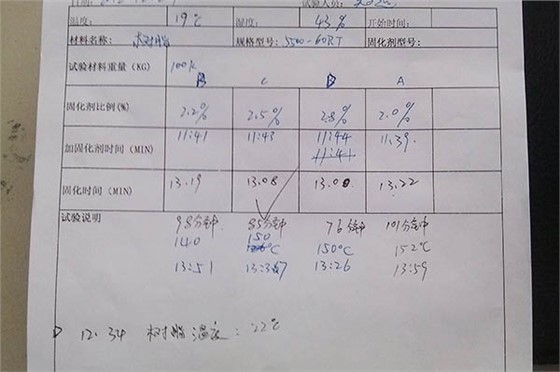 日期: 试验人员:
温度: 19℃ 湿度: 43% 开始时间:
材料名称: 树脂 规格型号: 5500-60RT 固化剂型号:
试验材料重量 (KG) 100k
B C D A
固化剂比例(%) 2.2% 2.5% 2.8% 2.0%
加固化剂时间 (MIN) 11:41 11:43 11:44 11.39.
11:41
固化时间 (MIN) 13.19 13.08 13.00 13.22
试验说明
98分钟 85分钟 76分钟 101分钟
140 150℃ 150℃ 152℃
13:51 13:37 13:26 13:59
12.34 树脂温度: 22℃